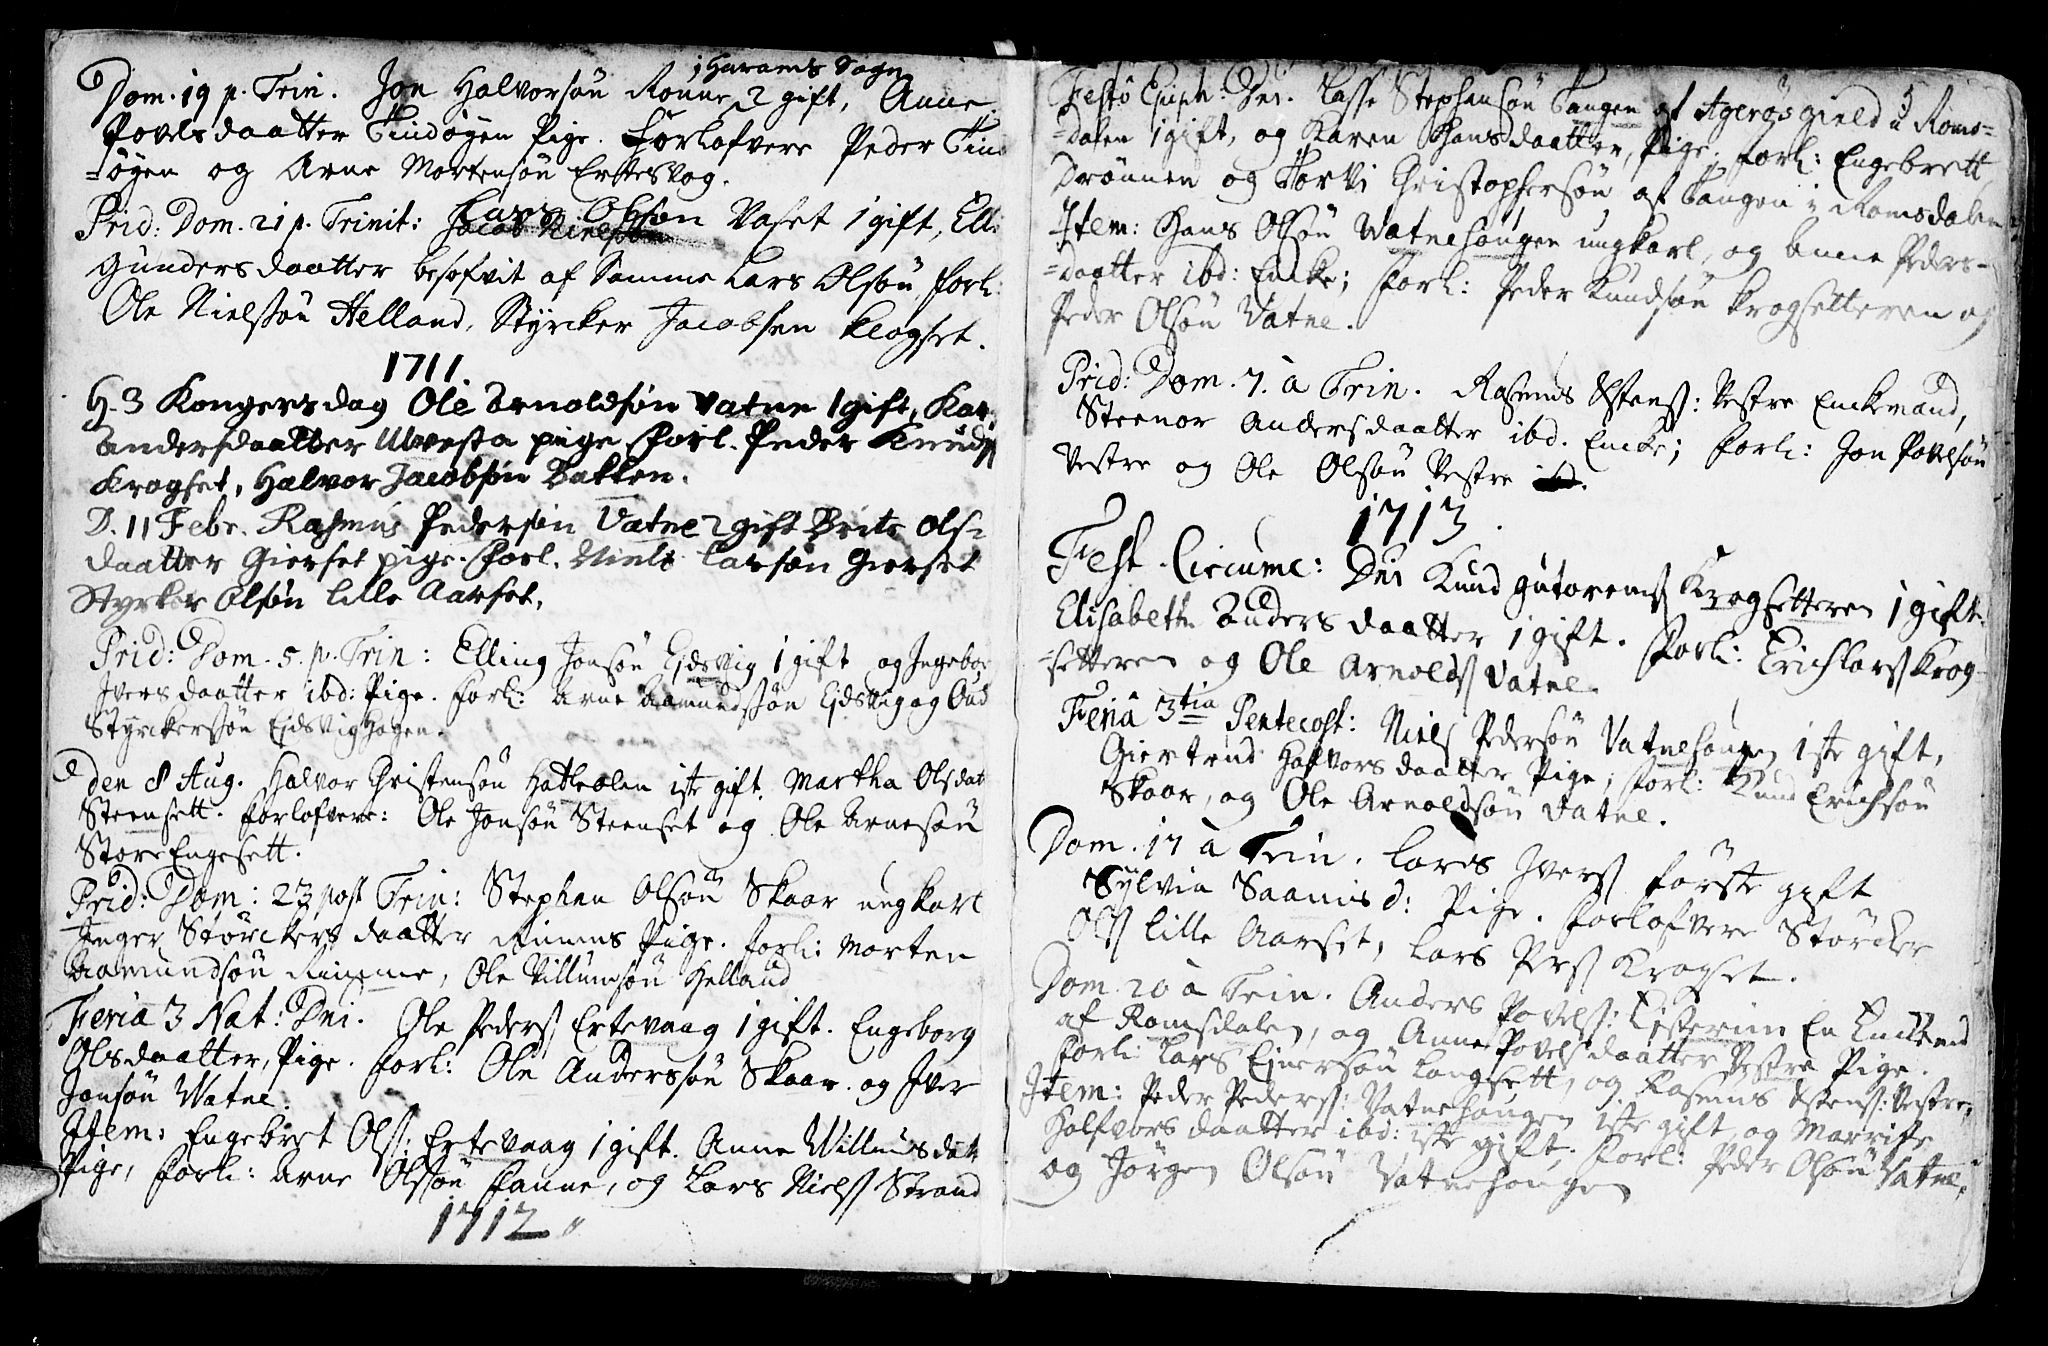 i Harams Sogn
Dom. 19 p. Trin. Jon Halvorsøn Rønne 2 gift, Anne
Povelsdaatter Findøyen Pige. Forlofvere Peder Fin-
-øyen og Arne Mortensøn Ertesvog.
Prid: Dom. 21 p. Trinit: Lars Olsøn Vaset 1 gift, Ell:
Gundersdaatter besofvit af Samme Lars Olsøn, forl:
Ole Nielssøn Helland, Styrcker Jacobsen Klogset.
1711.
H. 3 Kongersdag Ole Arnoldsøn Vatne 1 gift, Kar:
Andersdaatter Ulvesta pige forl. Peder Knuds
Krogset, Halvor Jacobsøn Bakken.
D. 11 Febr. Rasmus Pedersøn Vatne 2 gift Brite Ols-
daatter Gierset pige. forl. Niels Larsøn Gierset
Styrker Olsøn lille Aarset.
Prid: Dom. 5. p. Trin: Elling Jonsøn Ejdsvig 1 gift og Ingebor
Iversdaatter ibd: Pige. forl: Arne Aamundssøn Ejdsvig og Oud
Styrckerssøn Ejdsvighagen.
Den 8 Aug. Halvor Christensøn Hatleolen iste gift. Martha Olsdat
Steensett. forlofvere: Ole Jonsøn Steenset og Ole Arnesøn
Store Engesett.
Prid: Dom: 23 post Trin: Stephen Olsøn Skaar ungkarl
Inger Størckersdaatter Rimms Pige. forl: Morten
Aamundsøn Rimme, Ole Villumsøn Helland
Feria 3 Nat: Dni. Ole Peders Ertevaag 1 gift. Engeborg
Olsdaatter, Pige. forl: Ole Anderssøn Skaar. og Iver
Jonsøn Watne.
Item: Engebret Ols: Ertevaag 1 gift. Anne Willumsdat
Pige, forl: Arne Olsøn Fanne, og Lars Niels Strand
1712
Festo Epiph: Dni. Lasse Stephensøn Tangen af Agerøs gield i Roms-
-dalen 1 gift, og Karen Hansdaatter, Pige, forl: Engebrett
Drønnen og Torvi Christophersøn af Tangen i Romsdalen
Item: Hans Olsøn Watnehougen ungkarl, og Anne Peders-
-daatter ibd: Encke; forl: Peder Knudsøn Krogsetteren og
Peder Olsøn Vatne.
Prid: Dom. 7. a Trin. Rasmus Østens: Vestre Enckemand,
Steenor Andersdaatter ibd. Encke; forl: Jon Povelsøn
Vestre og Ole Olsøn Vestre
1713.
Fest. Circumc: Dni Knud Gutorms Krogsetteren 1 gift.
Elisabeth Andersdaatter 1 gift. forl: Erich Lars Krog-
-setteren og Ole Arnolds Vatne.
Feria 3tia Pentecost: Niels Pedersøn Vatnehougen 1ste gift,
Giertrud Halvorsdaatter Pige, forl: Knud Erichsøn
Skaar, og Ole Arnoldsøn Vatne.
Dom. 17 a Trin. Lares Ivers første gift
Sylvia Saamisd: Pige. forlofvere Størcker
Ols lille Aarset, Lars Pers Krogset.
Dom. 20 a Trin. Anders Povels: En
af Romsdalen, og Anne Povelsdaatter Vestre Pige.
forl: Lars Ejnersøn Longsett, og Rasmus Østens: Vestre,
Item: Peder Peders: Vatnehougen iste gift, og Marrite
Halfvorsdaatter ibd: iste gift. forl: Peder Olsøn Vatne,
og Jørgen Olsøn Vatnehougen